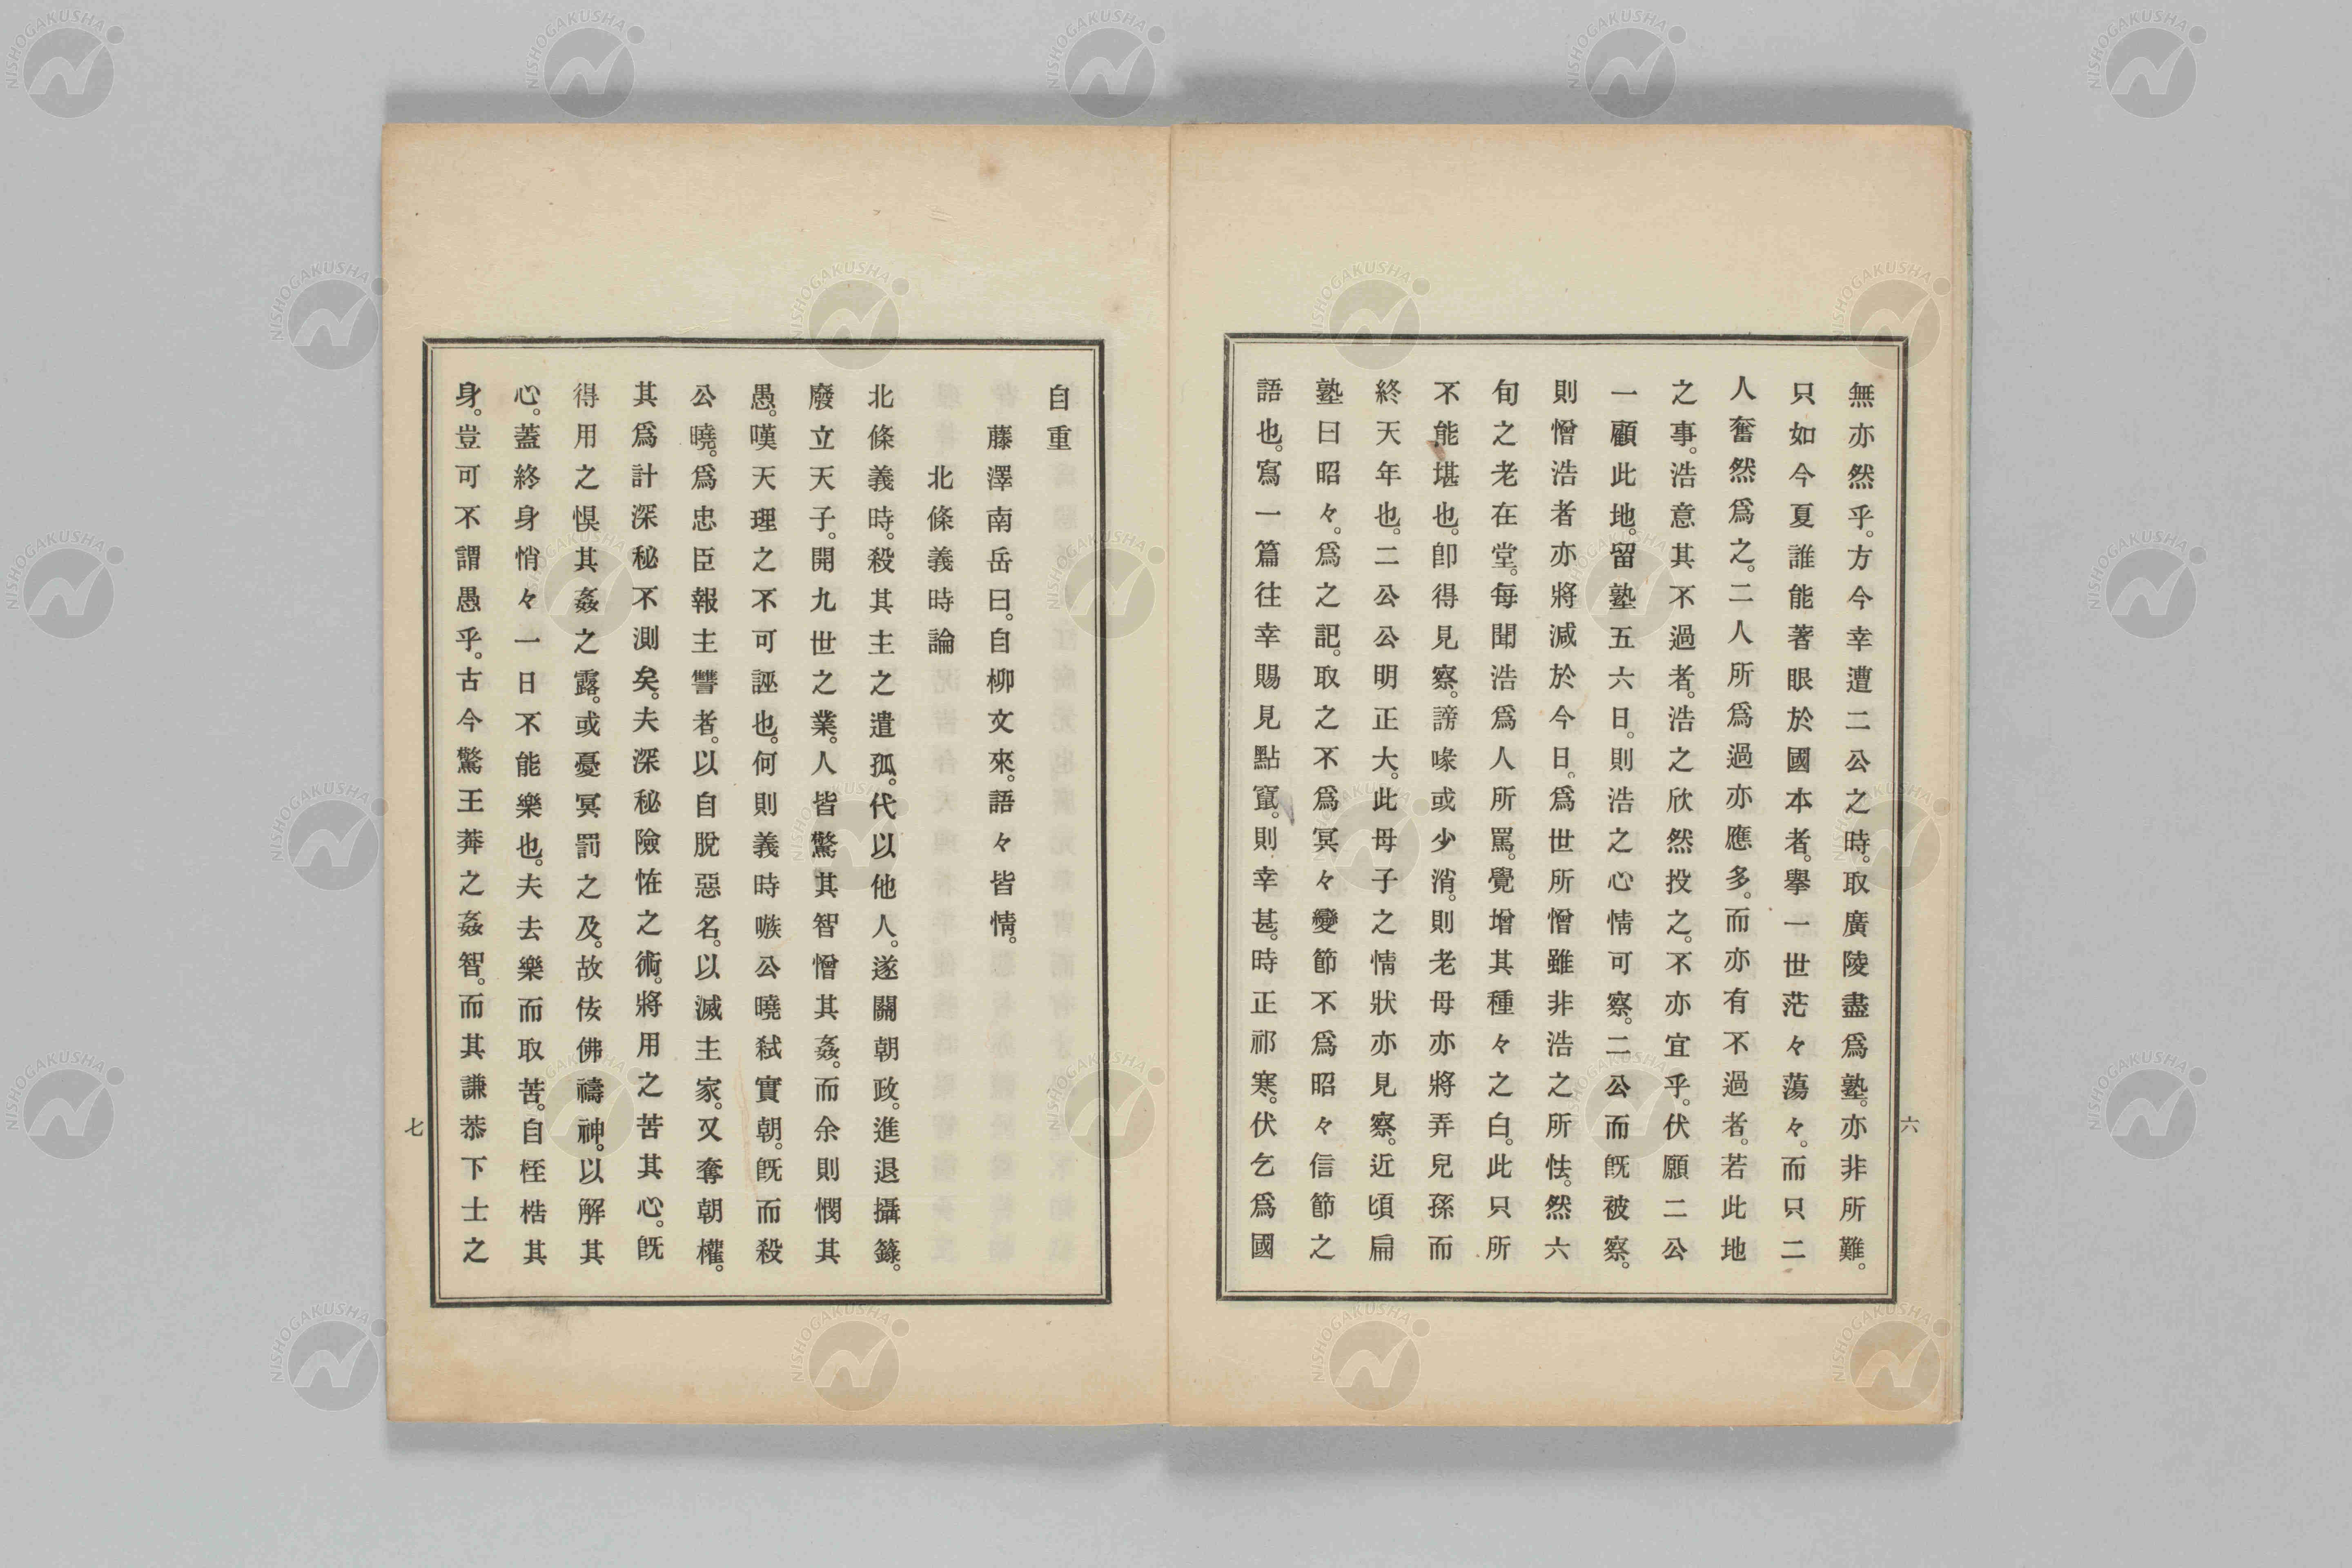 無亦然乎。方今幸遭二公之時。取廣陵盡爲塾。亦非所難。
只如今夏誰能著眼於國本者。擧一世茫々蕩々。而只二
人奮然爲之。二人所爲過亦應多。而亦有不過者。若此地
之事。浩意其不過者。浩之欣然投之。不亦宜乎。伏願二公
一顧此地。留塾五六日。則浩之心情可察。二公而旣被察。
則憎浩者亦將減於今日。爲世所憎雖非浩之所怯。然六
旬之老在堂。每聞浩爲人所罵。覺增其種々之白。此只所
不能堪也。卽得見察。謗喙或少消。則老母亦將弄兒孫而
終天年也。二公公明正大。此母子之情狀亦見察。近頃扁
塾曰昭々。爲之記。取之不爲冥々變節不爲昭々信節之
語也。寫一篇往幸賜見點竄。則幸甚。時正祁寒。伏乞爲國
六
自重
藤澤南岳曰。自柳文來。語々皆情。
北條義時論
北條義時。殺其主之遺孤。代以他人。遂關朝政。進退攝籙。
廢立天子。開九世之業。人皆驚其智憎其姦。而余則憫其
愚。嘆天理之不可誣也。何則義時嗾公曉弑實朝。旣而殺
公曉。爲忠臣報主讐者。以自脫惡名。以滅主家。又奪朝權。
其爲計深秘不測矣。夫深秘險恠之術。將用之苦其心。旣
得用之惧其姦之露。或憂冥罰之及。故佞佛禱神。以解其
心。蓋終身悄々一日不能樂也。夫去樂而取苦。自桎梏其
身。豈可不謂愚乎。古今驚王莽之姦智。而其謙恭下士之
七
NISHOGAKUSHA